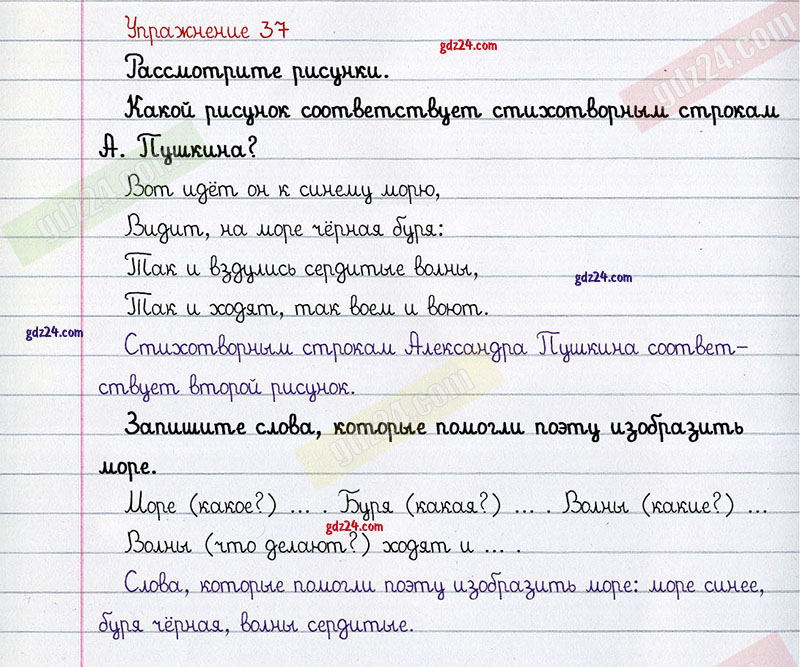 Упражнение 37
gdz24.com
gdz24.com
Рассмотрите рисунки.
Какой рисунок соответствует стихотворным строкам
А. Пушкина?
gdz24.com
Вот идёт он к синему морю,
Видит, на море чёрная буря:
Так и вздулись сердитые волны,
gdz24.com
Так и ходят, так воем и воют.
gdz24.com
Стихотворным строкам Александра Пушкина соответ-
ствует второй рисунок.
gdz24.com
Запишите слова, которые помогли поэту изобразить
море.
Море (какое?) ... . Буря (какая?) ... . Волны (какие?) ...
gdz24.com
Волны (что делают?) ходят и ... .
Слова, которые помогли поэту изобразить море: море синее,
буря чёрная, волны сердитые.